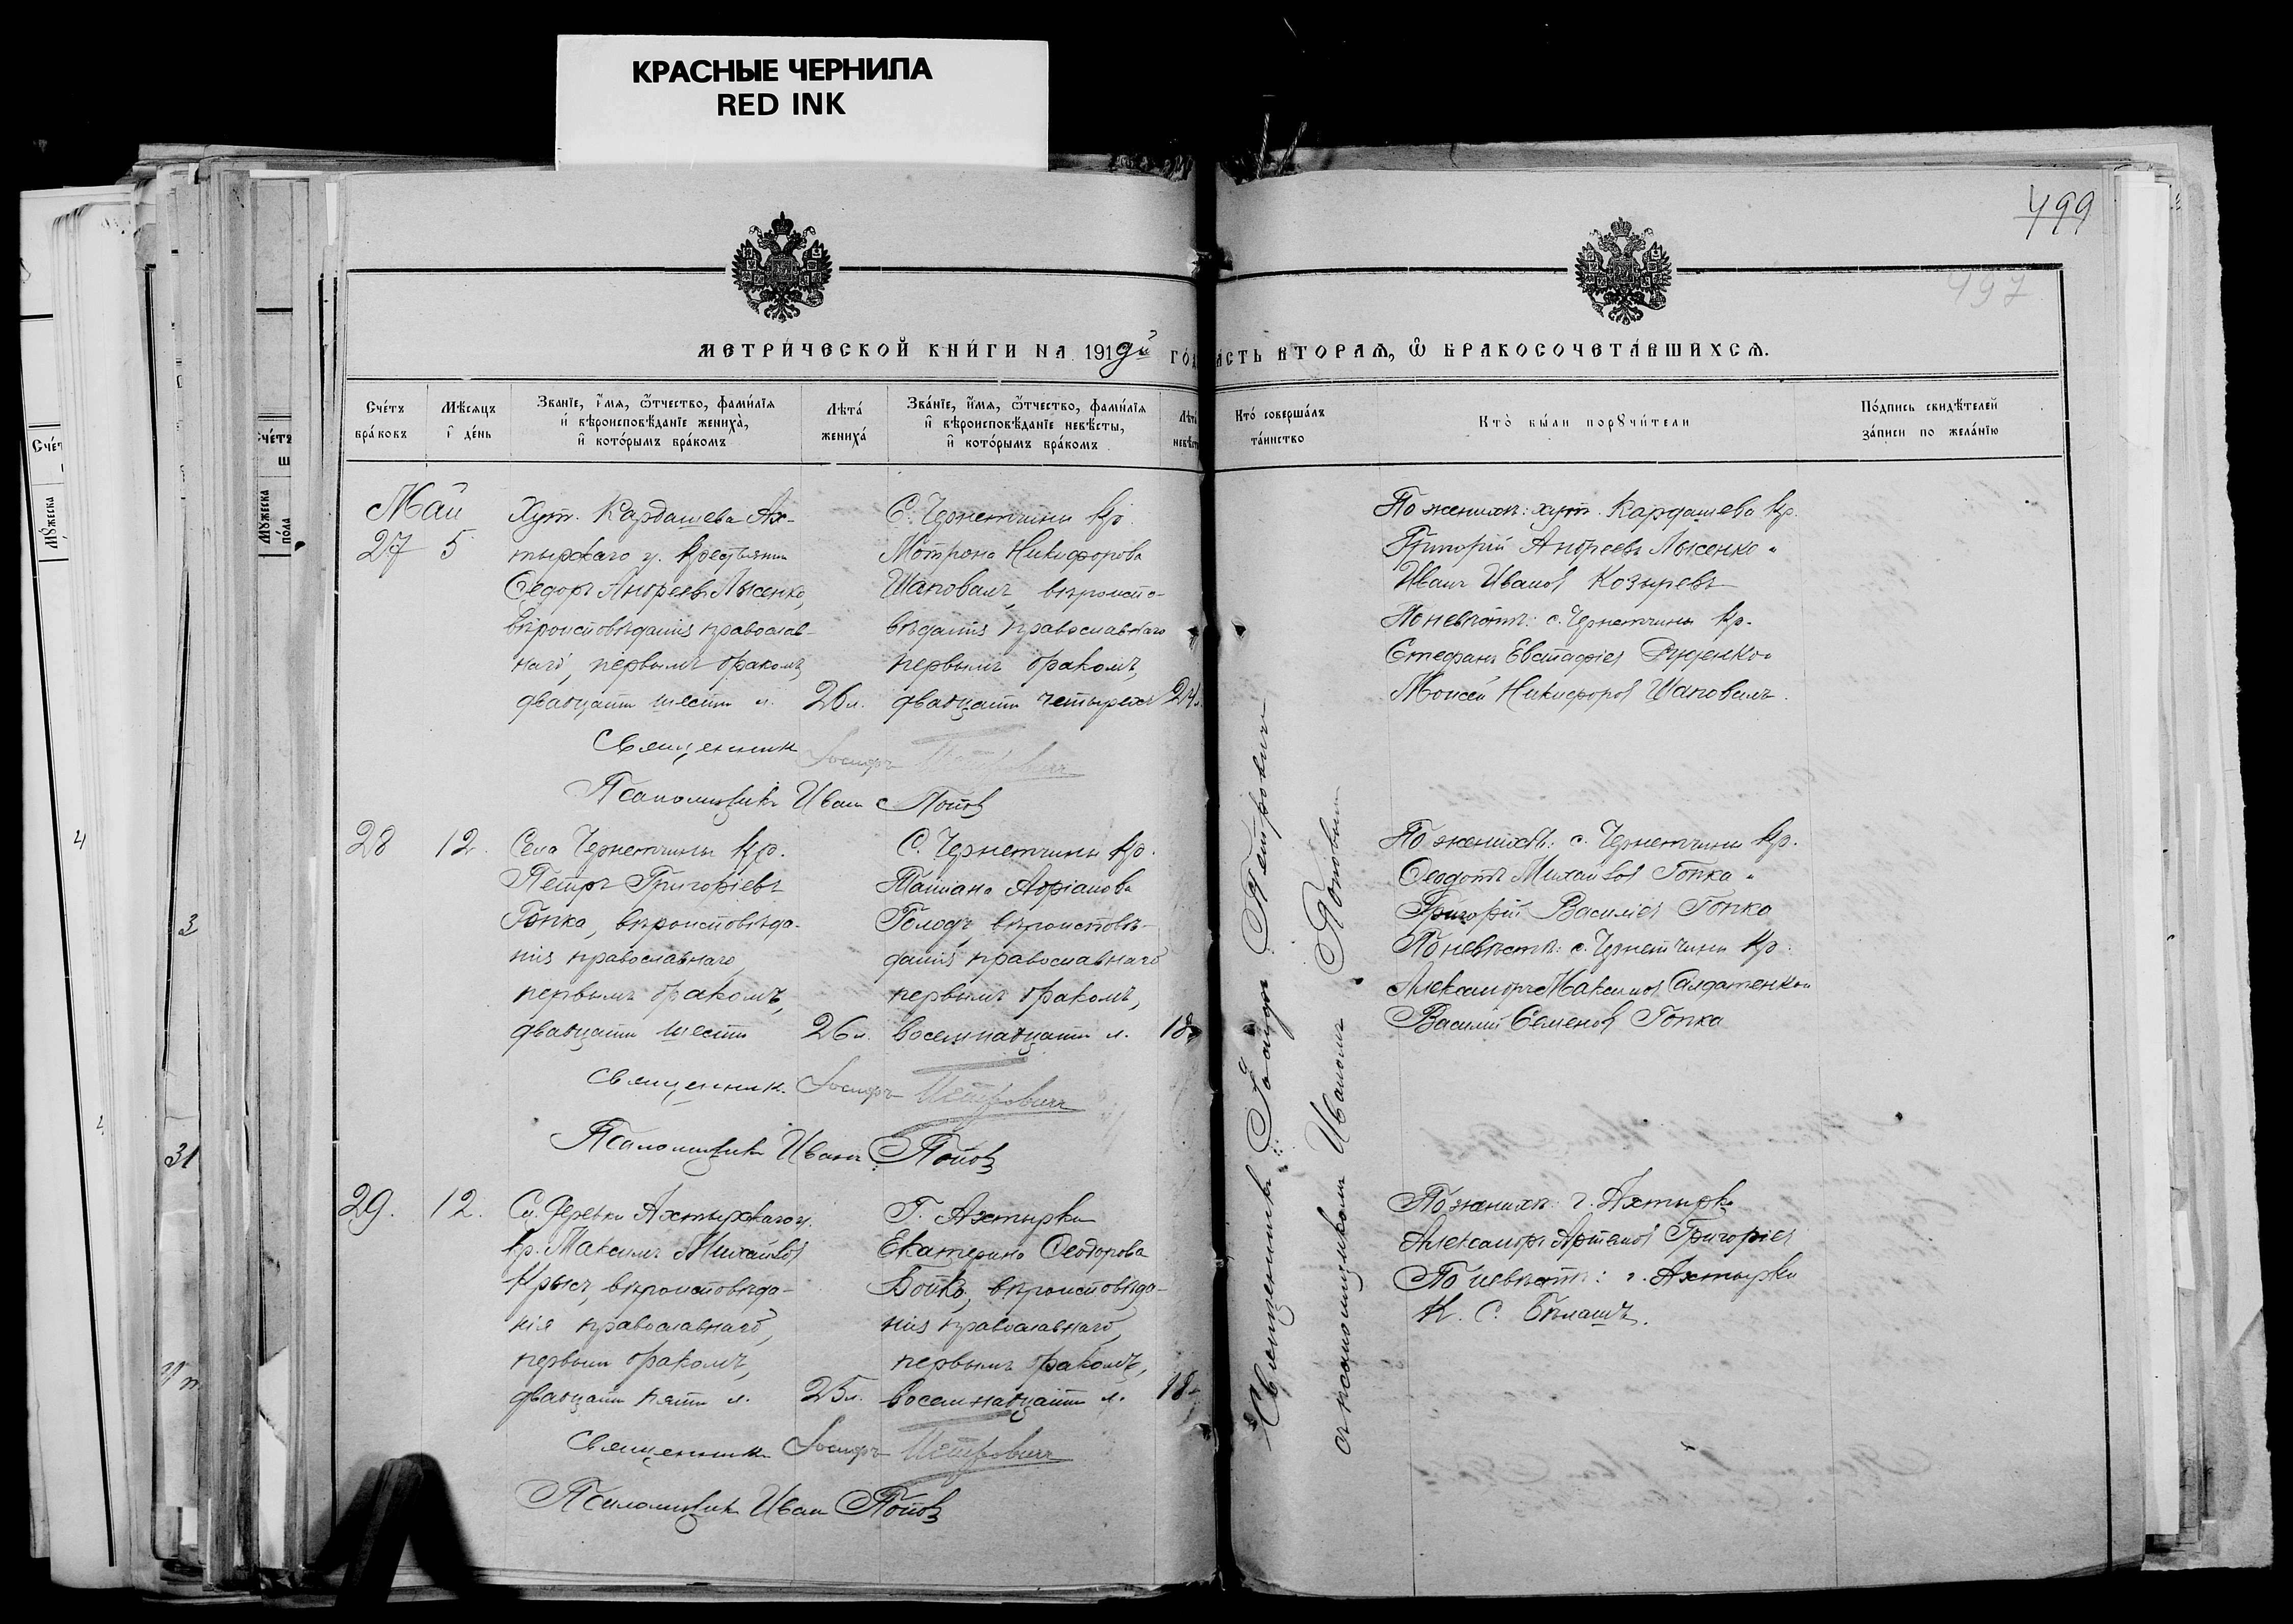 КРАСНЫЕ ЧЕРНИЛА
RED INK
499
497
МЕТРИ́ЧЕСКОЙ КНИ́ГИ НА 1919й ГО́Д
А́СТЬ ВТОРАѦ, Ѽ БРАКОСОЧЕТА́ВШИХСѦ.
Сче́тъ бра́ковъ
Мѣ́сяцъ и де́нь
Зва́нїе, и́мя, ѻ҆́тчество, фами́лїя и вѣроисповѣ́данїе жениха̀, и кото́рымъ бра́комъ
Лѣта́ жениха́
Зва́нїе, и́мя, ѻ҆́тчество, фами́лїя и вѣроисповѣ́данїе невѣ́сты, и кото́рымъ бра́комъ
Лѣта́ невѣ́ст
Кто̀ соверша́лъ та́инство
Кто̀ бы́ли порꙋчи́тели
По́дпись свидѣ́телей за́писи по жела́нїю
Май
27 5
Хут. Кардашева Ах-
тырскаго у. крестьянин
Ѳедоръ Андреевъ Лысенко,
вѣроисповѣданія православ-
наго, первымъ бракомъ,
двадцати шести л. 26 л.
С. Чернетчины кр.
Мотрона Никифорова
Шаповалъ, вѣроиспо-
вѣданія православнаго
первымъ бракомъ,
двадцати четырехъ 24 л.
Священник Іосифъ Петровичъ
Псаломщикъ Иван Попов
По женихѣ: хут. Кардашева кр.
Григорій Андреевъ Лысенко и
Иванъ Иванов Козыревъ
По невѣстѣ: с. Чернетчины кр.
Стефанъ Евстафіев Руденко и
Моисей Никифоров Шаповалъ.
28 12.
Села Чернетчины кр.
Петръ Григорьевъ
Гопка, вѣроисповѣда-
нія православнаго,
первымъ бракомъ,
двадцати шести 26 л.
С. Чернетчины кр.
Татіана Адріанова
Голодъ, вѣроисповѣ-
данія православнаго
первымъ бракомъ,
восемнадцати л. 18
Священник. Іосифъ Петровичъ
Псаломщикъ Иванъ Попов
По женихѣ: с. Чернетчины кр.
Ѳеодотъ Михайлов Гопка и
Григорій Василіев Гопка
По невѣстѣ: с. Чернетчины кр.
Александръ Максимов Солдатенко и
Василій Семенов Гопка
29. 12.
Сл. Деревки Ахтырскаго у.
кр. Максимъ Михайлов
вѣроисповѣда-
нія православнаго,
первым бракомъ,
двадцати пяти л. 25 л.
Г. Ахтырки
Екатерина Ѳеодорова
Бойко, вѣроисповѣда-
нія православнаго,
первымъ бракомъ,
восемнадцати л. 18
Священник Іосифъ Петровичъ
Псаломщикъ Иван Попов
По женихѣ: г. Ахтырки
Александръ Артемов Григоріев
По невѣстѣ: г. Ахтырки
К. С. Бѣлашъ.
Священникъ Іосифъ Петровичъ
съ псаломщикомъ Иваномъ Поповымъ